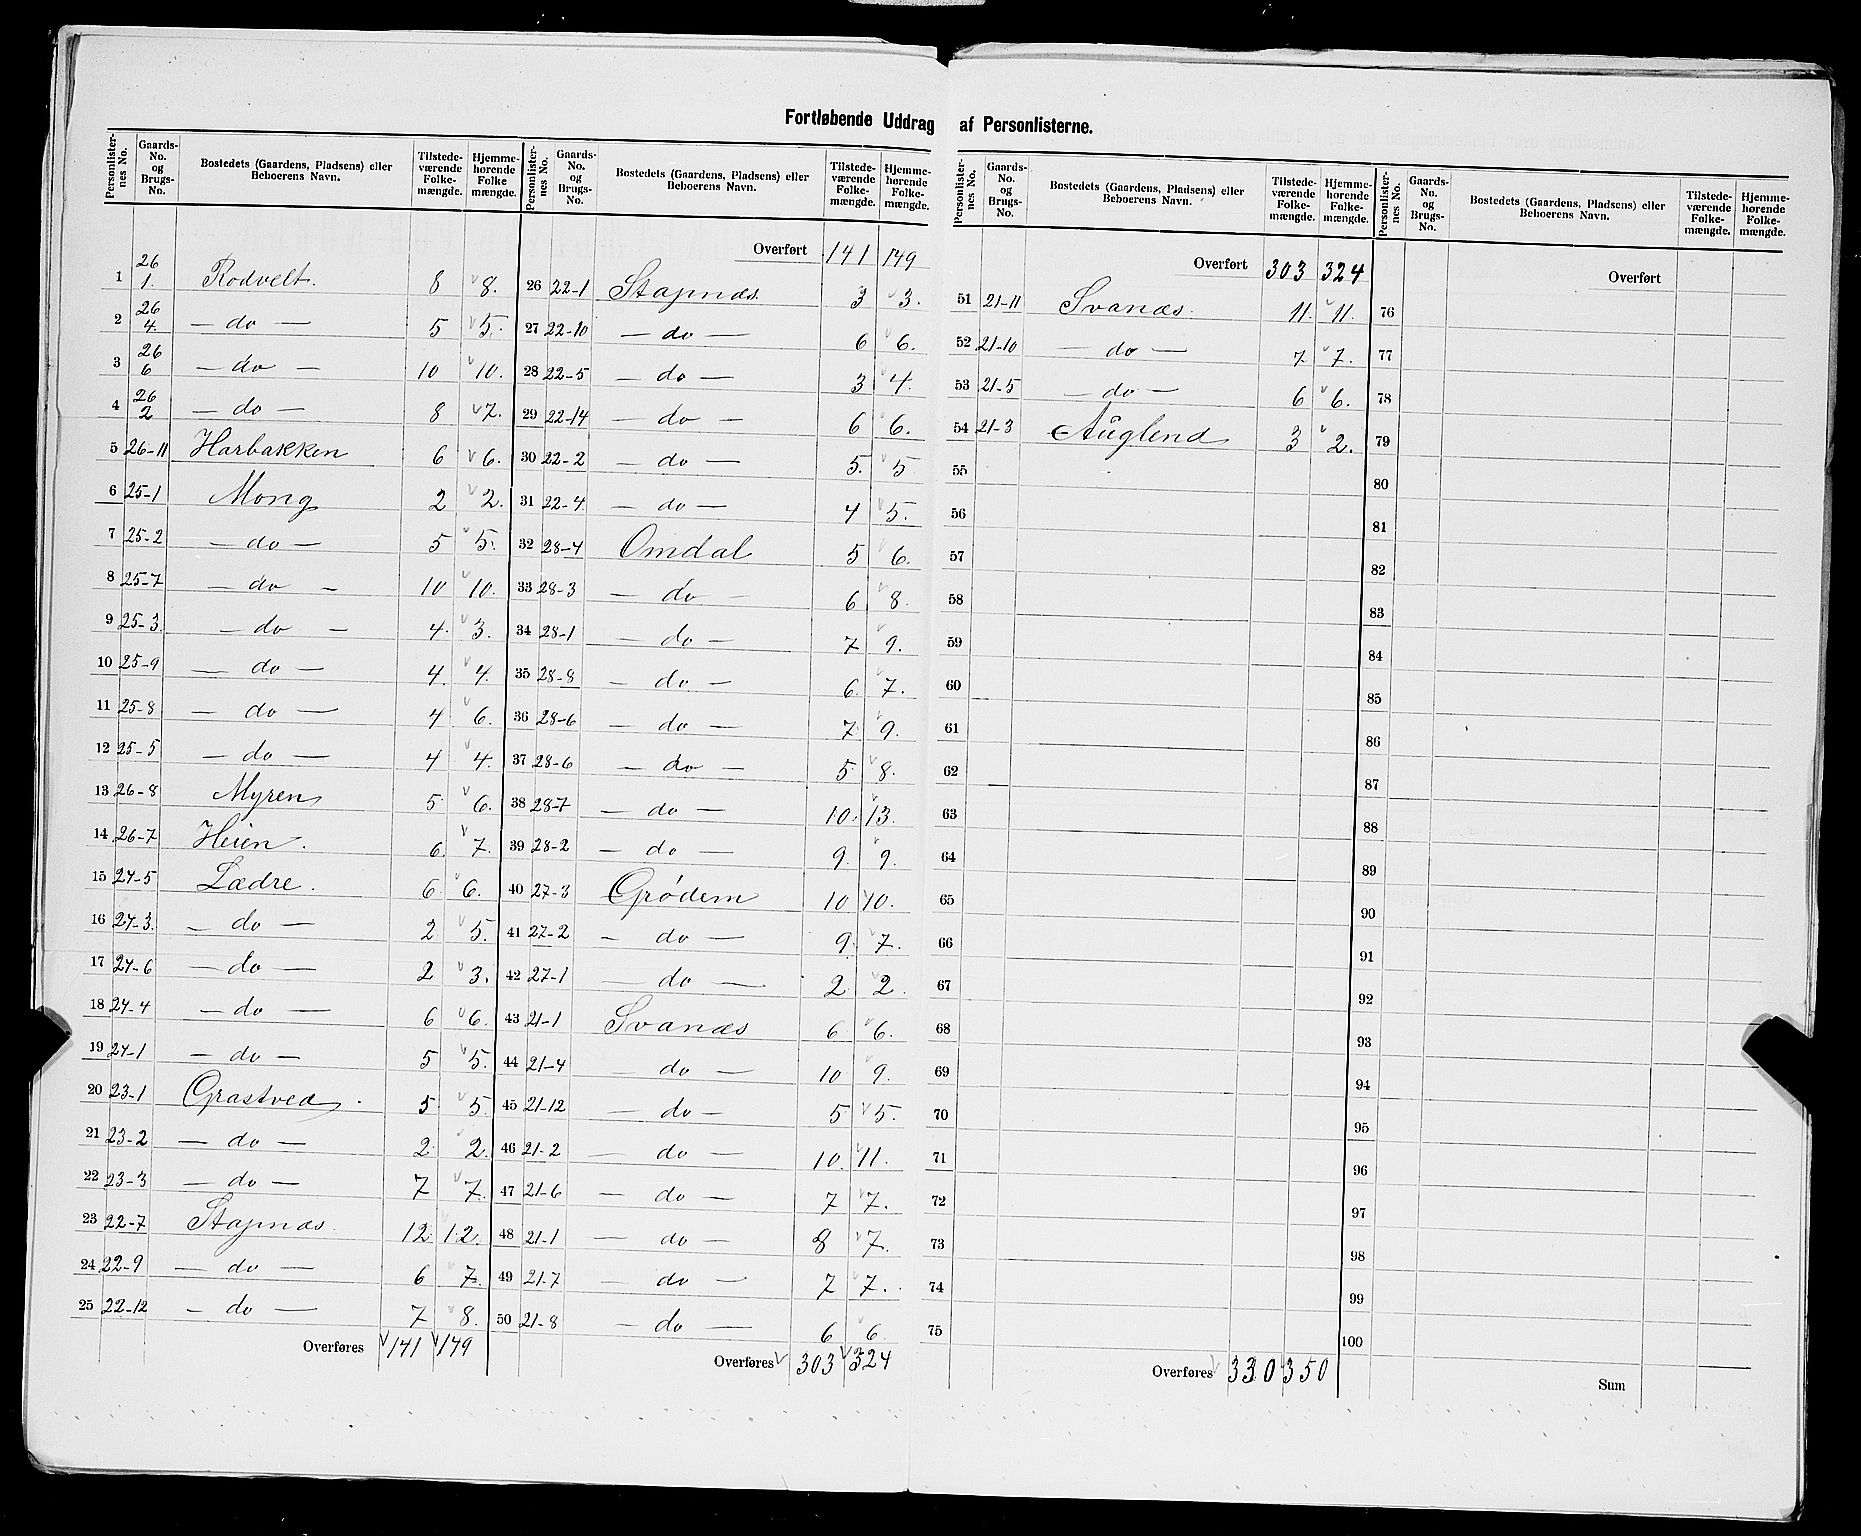 Fortløbende Uddrag af Personlisterne.
Personlister-nes No. | Gaards-No. og Brugs-No. | Bostedets (Gaardens, Pladsens) eller Beboerens Navn. | Tilstede-værende Folke-mængde. | Hjemme-hørende Folke mængde.
1 26 1. Rodvelt. 8 8.
2 26 4. — do — 5 5.
3 26 6 — do — 10 10.
4 26 2 — do — 8 7.
5 26-11 Harbakken 6 6.
6 25-1 Mong 2 2.
7 25-2 — do — 5 5.
8 25-7 — do — 10 10.
9 25-3. — do — 4. 3.
10 25-9 — do — 4. 4.
11 25-8 — do — 4 6.
12 25-5 — do — 4 4.
13 26-8 Myren 5 6.
14 26-7 Heien. 6. 7.
15 24-5 Lædre. 6. 6.
16 24-3. — do — 2 5.
17 24-6 — do — 2 3.
18 24-4 — do — 6 6.
19 24-1 — do — 5 5.
20 23-1 Grastved. 5 5.
21 23-2 — do — 2 2.
22 23-3 — do — 7 7.
23 22-7 Stapnæs. 12 12.
24 22-9 — do — 6 7.
25 22-12 — do — 7 8.
Overføres 141 149
Personlister-nes No. | Gaards-No. og Brugs-No. | Bostedets (Gaardens, Pladsens) eller Beboerens Navn. | Tilstede-værende Folke-mængde. | Hjemme-hørende Folke-mængde.
Overført 141 149
26 22-1 Stapnæs. 3 3.
27 22-10 — do — 6 6.
28 22-5 — do — 3 4.
29 22-14 — do — 6 6.
30 22-2 — do — 5. 5
31 22-4. — do — 4 5.
32 28-4 Omdal 5 6.
33 28-3 — do — 6 8.
34 28-1 — do — 7 9.
35 28-8 — do — 6. 7.
36 28-6 — do — 7. 9.
37 28-6 — do — 5. 8.
38 28-7 — do — 10. 13.
39 28-2 — do — 9. 9.
40 27-3 Grødem 10 10.
41 27-2 — do — 9. 7.
42 27-1 — do — 2 2.
43 21-1 Svanæs 6 6.
44 21-4 — do — 10 9.
45 21-12 — do — 5 5.
46 21-2 — do — 10. 11.
47 21-6 — do — 7 7.
48 21-1 — do — 8 7.
49 21-7 — do — 7 7.
50 21-8 — do — 6 6.
Overføres 303 324
Personlister-nes No. | Gaards-No. og Brugs-No. | Bostedets (Gaardens, Pladsens) eller Beboerens Navn. | Tilstede-værende Folke-mængde. | Hjemme-hørende Folke-mængde.
Overført 303 324
51 21-11 Svanæs. 11. 11.
52 21-10 — do — 7 7.
53 21-5 — do — 6 6.
54 21-3 Auglend 3 2.
55
56
57
58
59
60
61
62
63
64
65
66
67
68
69
70
71
72
73
74
75
Overføres 330 350
Personlister-nes No. | Gaards-No. og Brugs-No. | Bostedets (Gaardens, Pladsens) eller Beboerens Navn. | Tilstede-værende Folke-mængde. | Hjemme-hørende Folke-mængde.
Overført
76
77
78
79
80
81
82
83
84
85
86
87
88
89
90
91
92
93
94
95
96
97
98
99
100
Sum